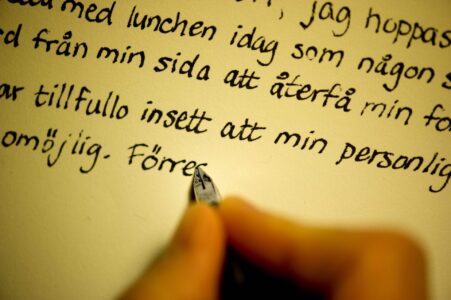 med lunchen idag som någon s
d från min sida att återfå min fo
ar tillfullo insett att min personlig
omöjlig. Förre
jag hoppas